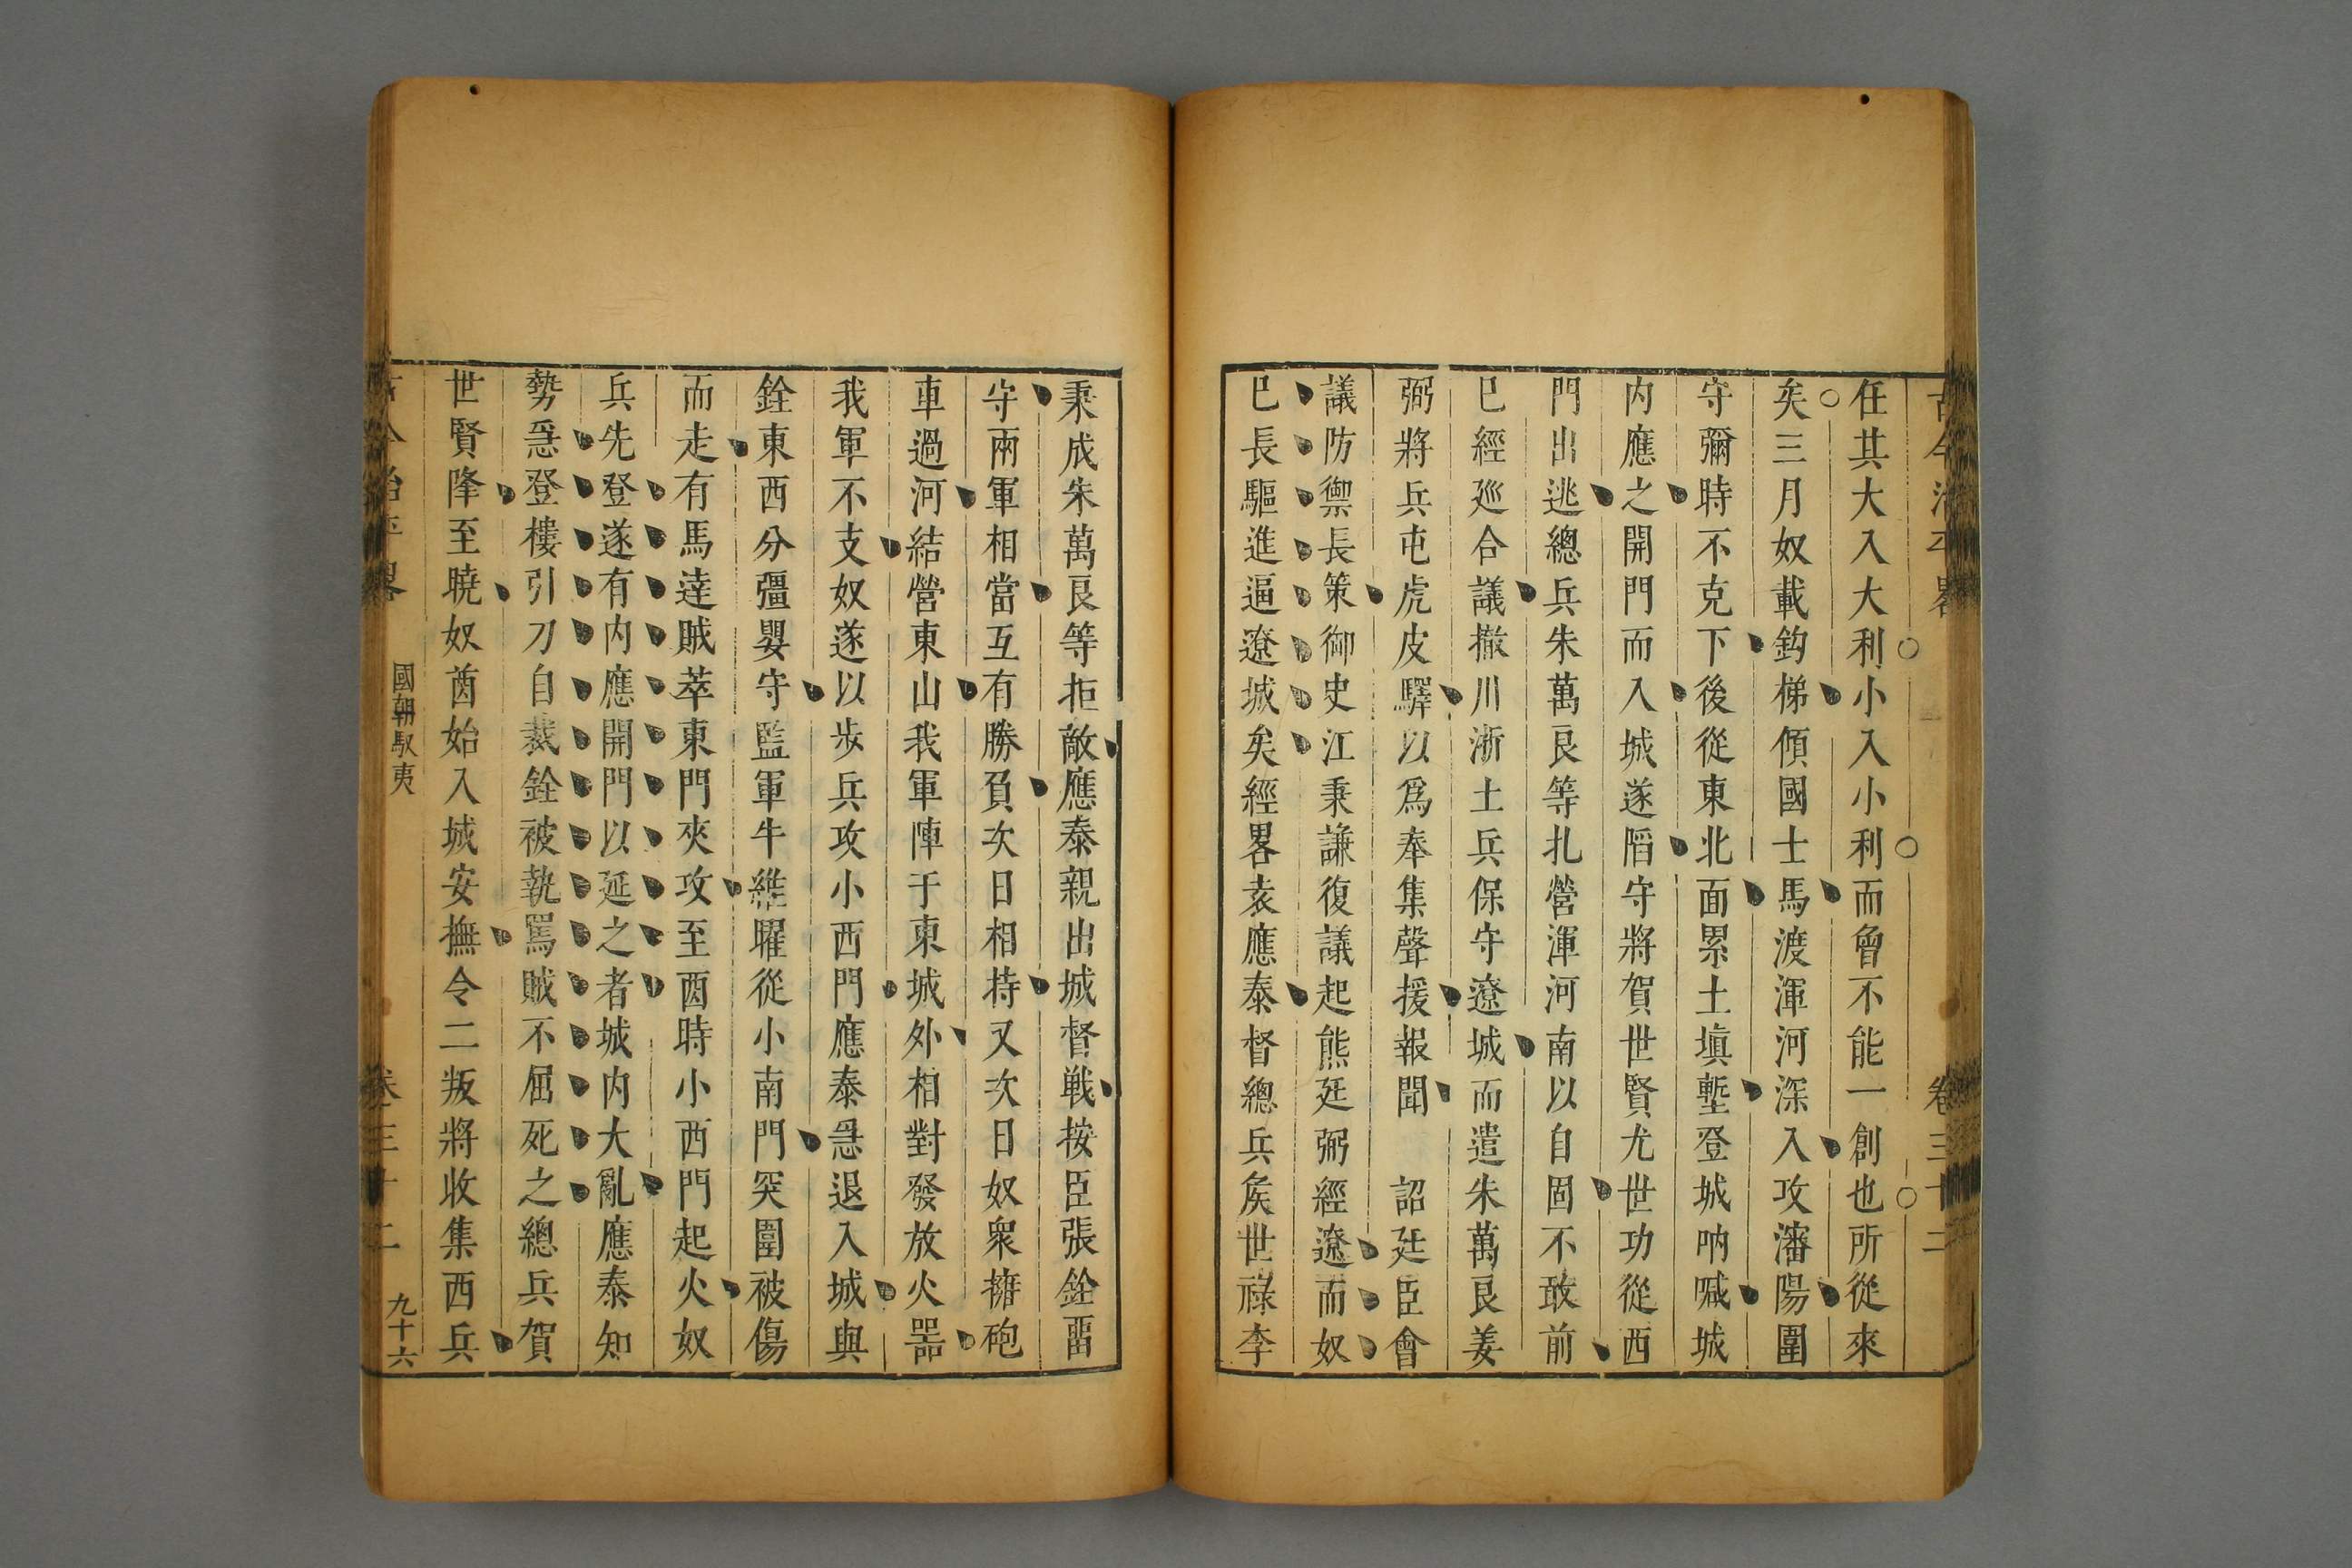 古今治平畧 卷三十二
任其大入大利小入小利而曾不能一創也所從來
矣三月奴載鈎梯傾國士馬渡渾河深入攻瀋陽圍
守彌時不克下後從東北面累土塡塹登城吶喊城
内應之開門而入城遂陷守將賀世賢尤世功從西
門出逃總兵朱萬良等扎營渾河南以自固不敢前
巳經廵合議撤川浙土兵保守遼城而遣朱萬良姜
弼將兵屯虎皮驛以爲奉集聲援報聞 詔廷臣會
議防禦長策御史江秉謙復議起熊廷弼經遼而奴
巳長驅進逼遼城矣經畧袁應泰督總兵矦世祿李
秉成朱萬良等拒敵應泰親出城督戰按臣張銓畱
守兩軍相當互有勝負次日相持又次日奴衆擁砲
車過河結營東山我軍陣于東城外相對發放火噐
我軍不支奴遂以步兵攻小西門應泰急退入城與
銓東西分彊嬰守監軍牛維曜從小南門突圍被傷
而走有馬達賊萃東門夾攻至酉時小西門起火奴
兵先登遂有内應開門以延之者城内大亂應泰知
勢急登樓引刀自裁銓被執罵賊不屈死之總兵賀
世賢降至曉奴酋始入城安撫令二叛將收集西兵
古今治平畧 國朝馭夷 卷三十二 九十六